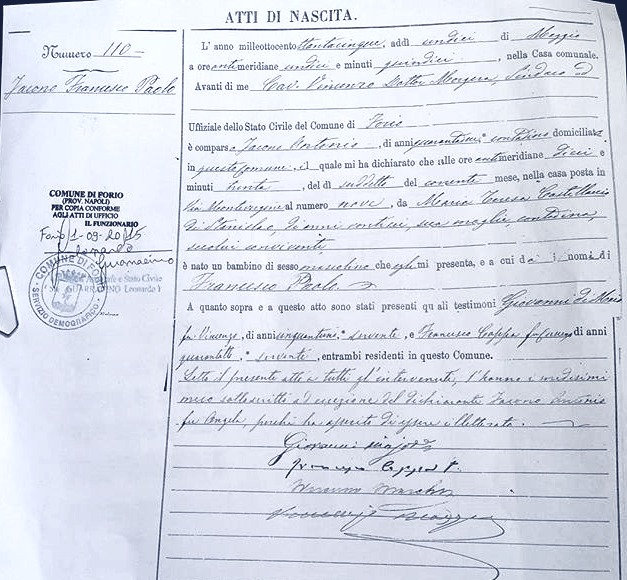 ATTI DI NASCITA.
Numero 110
Jacono Francesco Paolo
COMUNE DI FORIO
(PROV. NAPOLI)
PER COPIA CONFORME
AGLI ATTI DI UFFICIO
IL FUNZIONARIO
COMUNE DI FORIO
SERVIZIO DEMOGRAFICO
e Stato Civile
L'anno milleottocentottantacinque, addì undici di Maggio
a ore antimeridiane undici e minuti quindici, nella Casa comunale.
Avanti di me Cav. Vincenzo Dottor Morgera, Sindaco ed
Uffiziale dello Stato Civile del Comune di Forio
è comparso Jacono Antonio, di anni contadino domiciliato
in questo Comune, il quale mi ha dichiarato che alle ore antimeridiane dieci e
minuti trenta, del dì suddetto del corrente mese, nella casa posta in
Via Montevergine al numero nove, da Maria Teresa Castellaccio
di Stanislao, di anni sua moglie contadina,
secolui convivente
è nato un bambino di sesso mascolino che egli mi presenta, e a cui dà i nomi di
Francesco Paolo
A quanto sopra e a questo atto sono stati presenti quali testimoni Giovanni di Maio
fu Vincenzo, di anni servente, e Francesco Coppa di anni
servente, entrambi residenti in questo Comune.
Letto il presente atto a tutti gl'intervenuti, l'hanno i medesimi
meco sottoscritto ad eccezione del dichiarante Jacono Antonio
fu Angelo, perchè ha asserito di essere illetterato.
Giovanni